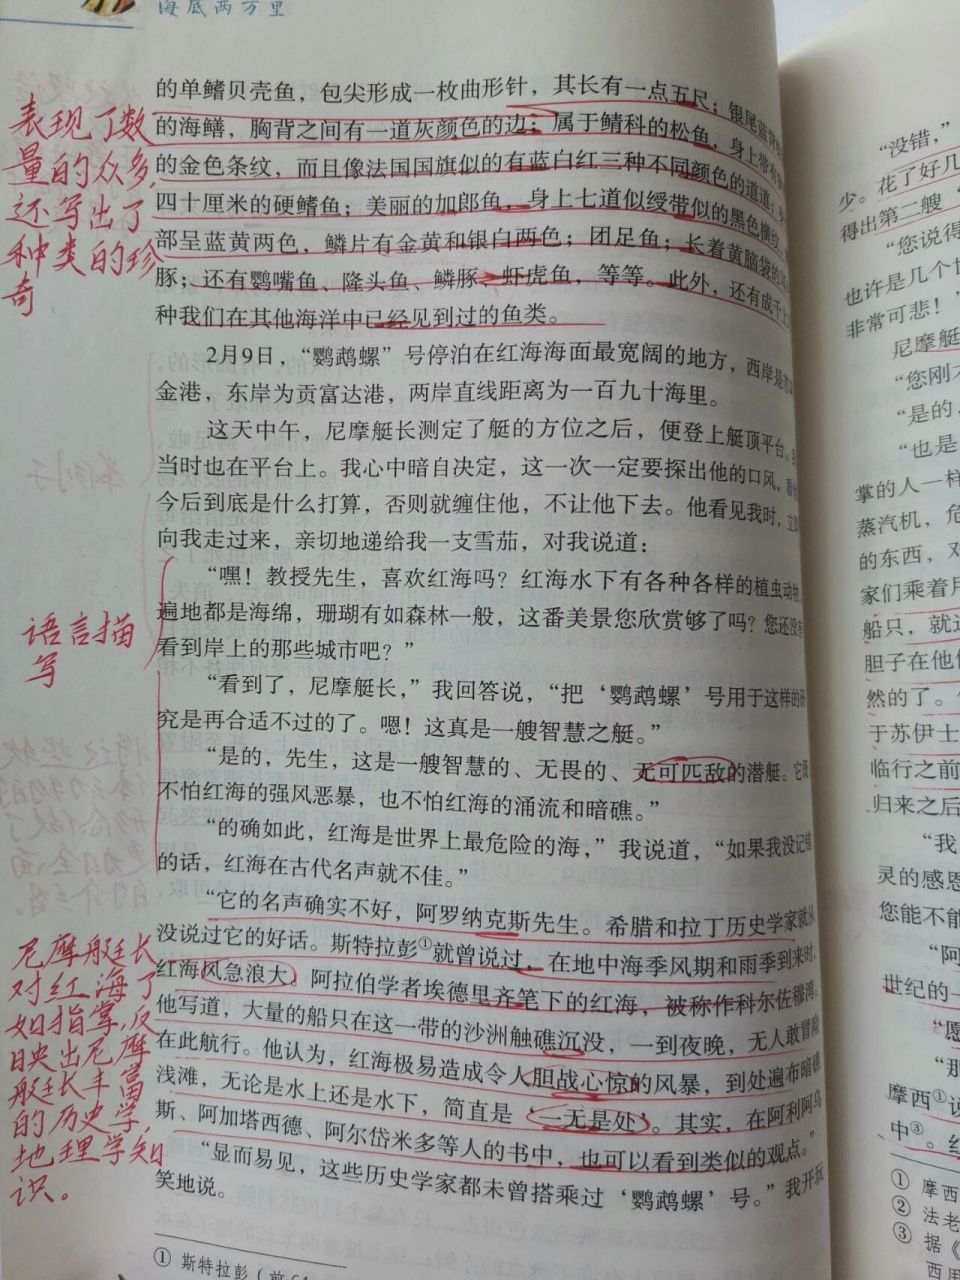 海底两万里
的单鳍贝壳鱼，包尖形成一枚曲形针，其长有一点五尺；银尾蓝背
的海鳝，胸背之间有一道灰颜色的边；属于鲭科的松鱼，身上带有
的金色条纹，而且像法国国旗似的有蓝白红三种不同颜色的道道；
四十厘米的硬鳍鱼；美丽的加郎鱼，身上七道似绶带似的黑色横纹，
部呈蓝黄两色，鳞片有金黄和银白两色；团足鱼；长着黄脑袋的
豚；还有鹦嘴鱼、隆头鱼、鳞豚、虾虎鱼，等等。此外，还有成千上
种我们在其他海洋中已经见到过的鱼类。
2月9日，“鹦鹉螺”号停泊在红海海面最宽阔的地方，西岸是
金港，东岸为贡富达港，两岸直线距离为一百九十海里。
这天中午，尼摩艇长测定了艇的方位之后，便登上艇顶平台。
当时也在平台上。我心中暗自决定，这一次一定要探出他的口风，看
今后到底是什么打算，否则就缠住他，不让他下去。他看见我时，立
向我走过来，亲切地递给我一支雪茄，对我说道：
“嘿！教授先生，喜欢红海吗？红海水下有各种各样的植虫动物，
遍地都是海绵，珊瑚有如森林一般，这番美景您欣赏够了吗？您还没有
看到岸上的那些城市吧？”
“看到了，尼摩艇长，”我回答说，“把‘鹦鹉螺’号用于这样的研
究是再合适不过的了。嗯！这真是一艘智慧之艇。”
“是的，先生，这是一艘智慧的、无畏的、无可匹敌的潜艇。它既
不怕红海的强风恶暴，也不怕红海的涌流和暗礁。”
“的确如此，红海是世界上最危险的海，”我说道，“如果我没记错
的话，红海在古代名声就不佳。”
“它的名声确实不好，阿罗纳克斯先生。希腊和拉丁历史学家就从
没说过它的好话。斯特拉彭①就曾说过，在地中海季风期和雨季到来时，
红海风急浪大。阿拉伯学者埃德里齐笔下的红海，被称作科尔佐穆湾。
他写道，大量的船只在这一带的沙洲触礁沉没，一到夜晚，无人敢冒险
在此航行。他认为，红海极易造成令人胆战心惊的风暴，到处遍布暗礁
浅滩，无论是水上还是水下，简直是‘一无是处’。其实，在阿利阿乌
斯、阿加塔西德、阿尔岱米多等人的书中，也可以看到类似的观点。”
“显而易见，这些历史学家都未曾搭乘过‘鹦鹉螺’号。”我开玩
笑地说。
① 斯特拉彭（前
表现了数
量的众多，
还写出了
种类的珍
奇
语言描
写
尼摩艇长
对红海了
如指掌，反
映出尼摩
艇长丰富
的历史学，
地理学知
识。
“没错，”
少。花了好几
得出第二艘
“您说得
也许是几个世
非常可悲！”
尼摩艇
“您刚
“是的，
“也是
掌的人一样
蒸汽机，危
的东西，对
家们乘着用
船只，就这
胆子在他们
然的了。
于苏伊士
临行之前
归来之后
“我
灵的感恩
您能不能
“阿
世纪的一
“愿
“那
摩西①说
中③。红
① 摩西
② 法老
③ 据《
西用